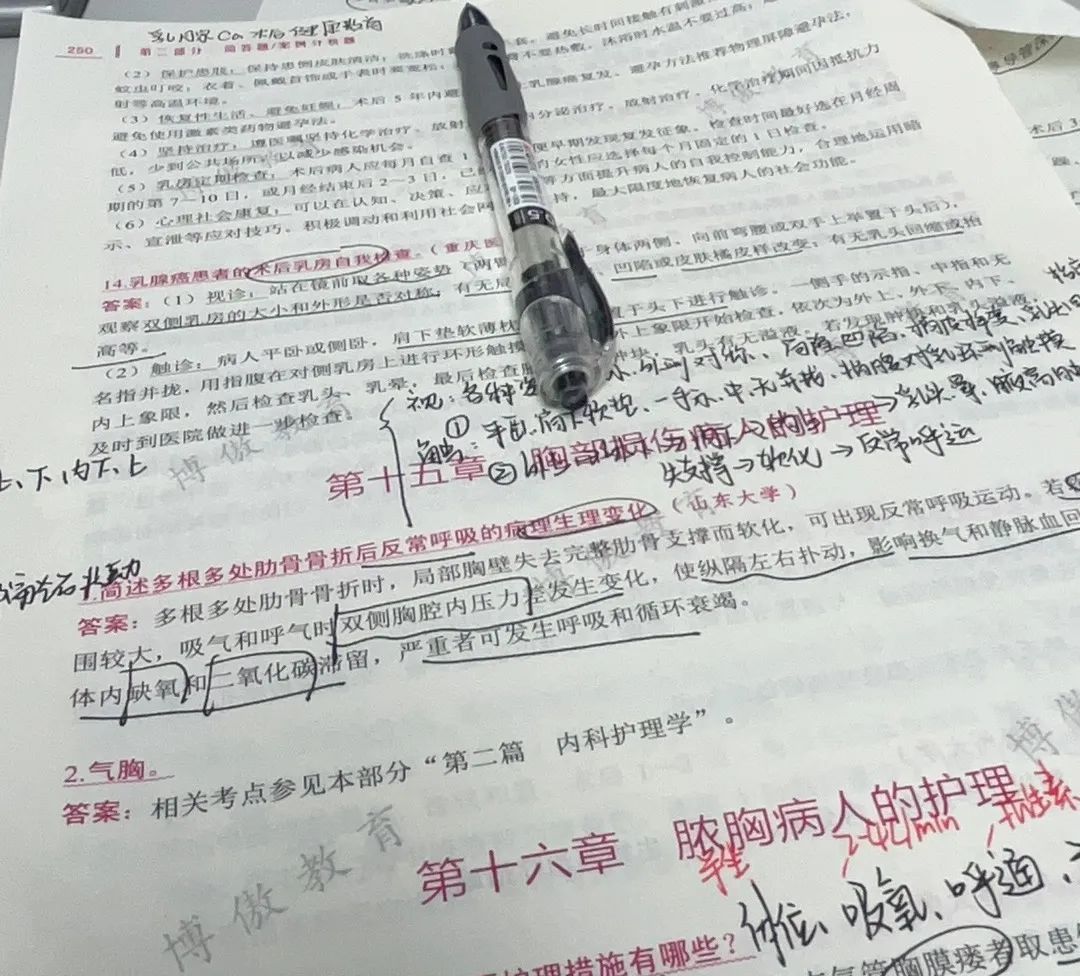 乳腺Ca术后健康教育
250 第二部分 简答题/案例分析题
(2)保护患肢:保持患侧皮肤清洁;洗涤时 套,避免长时间接触有刺激
蚊虫叮咬;衣着、佩戴首饰或手表时要宽松; 不要热敷,沐浴时水温不要过高;
射等高温环境。
(3)恢复性生活、避免妊娠:术后5年内避 乳腺癌复发。避孕方法推荐物理屏障避孕,
避免使用激素类药物避孕法。
(4)坚持治疗:遵医嘱坚持化学治疗、放射 分泌治疗。放射治疗、化学治疗期间因抵抗力
低,少到公共场所,以减少感染机会。
(5)乳房定期检查:术后病人应每月自查1 便早期发现复发征象。检查时间最好选在月经周
期的第7~10日,或月经结束后2~3日,已 的女性应选择每个月固定的1日检查。
(6)心理社会康复:可以在认知、决策、应 等方面提升病人的自我控制能力,合理地运用暗
示、宣泄等应对技巧,积极调动和利用社会网 持,最大限度地恢复病人的社会功能。
14.乳腺癌患者的术后乳房自我检查。(重庆医
答案:(1)视诊:站在镜前取各种姿势(两臂 身体两侧、向前弯腰或双手上举置于头后),
观察双侧乳房的大小和外形是否对称;有无局 凹陷或皮肤橘皮样改变;有无乳头回缩或抬
高等。
(2)触诊:病人平卧或侧卧,肩下垫软薄枕 置于头下进行触诊。一侧手的示指、中指和无
名指并拢,用指腹在对侧乳房上进行环形触摸 外上象限开始检查,依次为外上、外下、内下、
内上象限,然后检查乳头、乳晕,最后检查腋 肿块,乳头有无溢液。若发现肿块和乳头溢液,
及时到医院做进一步检查。
视:各种姿 外形对称、局部凹陷、
触:①平卧、肩下软垫、一手示、中、无并拢、指腹对乳环形触摸
②
→乳头、晕、腋
下、内下、上
第十五章 胸部损伤病人的护理
失支撑→软化→反常呼运
1.简述多根多处肋骨骨折后反常呼吸的病理生理变化。(山东大学)
答案:多根多处肋骨骨折时,局部胸壁失去完整肋骨支撑而软化,可出现反常呼吸运动。若
围较大,吸气和呼气时双侧胸腔内压力差发生变化,使纵隔左右扑动,影响换气和静脉血回
体内缺氧和二氧化碳滞留,严重者可发生呼吸和循环衰竭。
2.气胸。
答案:相关考点参见本部分“第二篇 内科护理学”。
第十六章 脓胸病人的护理
2-4L/min
体位、吸氧、呼通、
护理措施有哪些?
胸膜瘘者取患
博傲教育